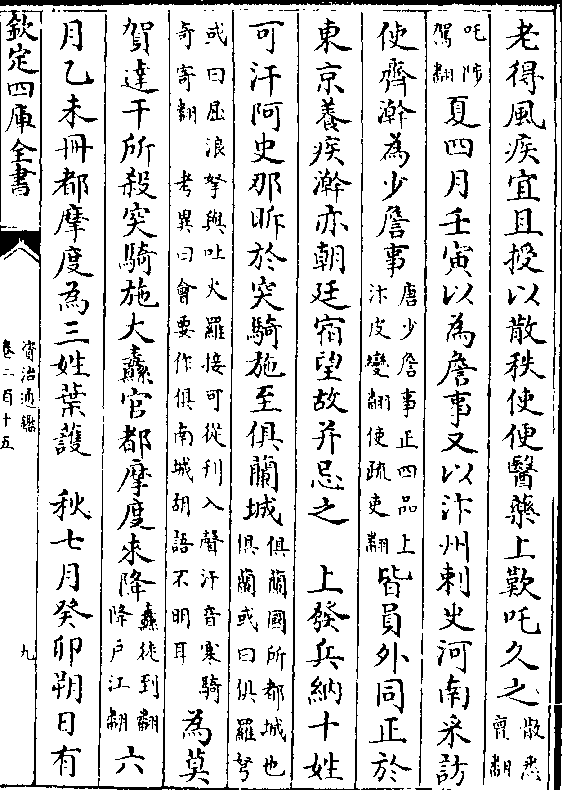 老得風疾宜且授以散秩使便醫藥上歎吒久之散悉亶翻
吒陟駕翻夏四月壬寅以為詹事又以汴州刺史河南采訪
使齊澣為少詹事唐少詹事正四品上汴皮變翻使疏吏翻皆員外同正於
東京養疾澣亦朝廷宿望故并忌之　上發兵納十姓
可汗阿史那昕於突騎施至俱蘭城俱蘭國所都城也俱蘭或曰俱羅弩
或曰屈浪弩與吐火羅接可從刋入聲汗音寒騎奇寄翻　考異曰會要作俱南城胡語不明耳為莫
賀達干所殺突騎施大纛官都摩度來降纛徒到翻降戶江翻六
月乙未冊都摩度為三姓葉護　秋七月癸卯朔日有
欽定四庫全書
資治通鑑
卷二百十五
九